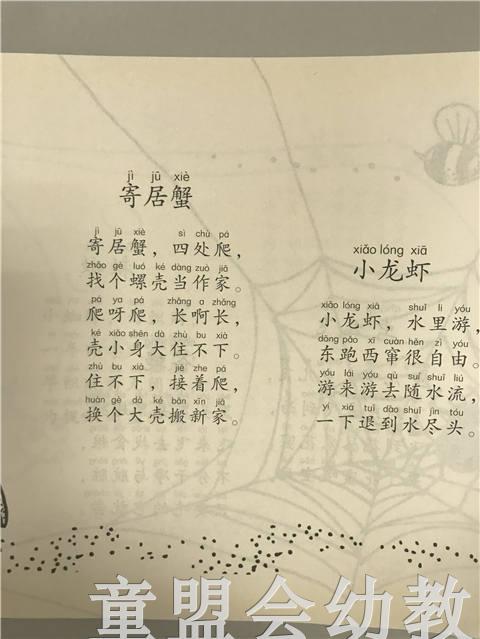 jì jū xiè
寄居蟹
jì jū xiè sì chù pá
寄居蟹，四处爬，
zhǎo gè luó ké dàng zuò jiā
找个螺壳当作家。
pá ya pá zhǎng a zhǎng
爬呀爬，长啊长，
ké xiǎo shēn dà zhù bu xià
壳小身大住不下。
zhù bu xià jiē zhe pá
住不下，接着爬，
huàn gè dà ké bān xīn jiā
换个大壳搬新家。
xiǎo lóng xiā
小龙虾
xiǎo lóng xiā shuǐ li yóu
小龙虾，水里游，
dōng pǎo xī cuàn hěn zì yóu
东跑西窜很自由。
yóu lái yóu qù suí shuǐ liú
游来游去随水流，
yí xià tuì dào shuǐ jìn tóu
一下退到水尽头。
童盟会幼教